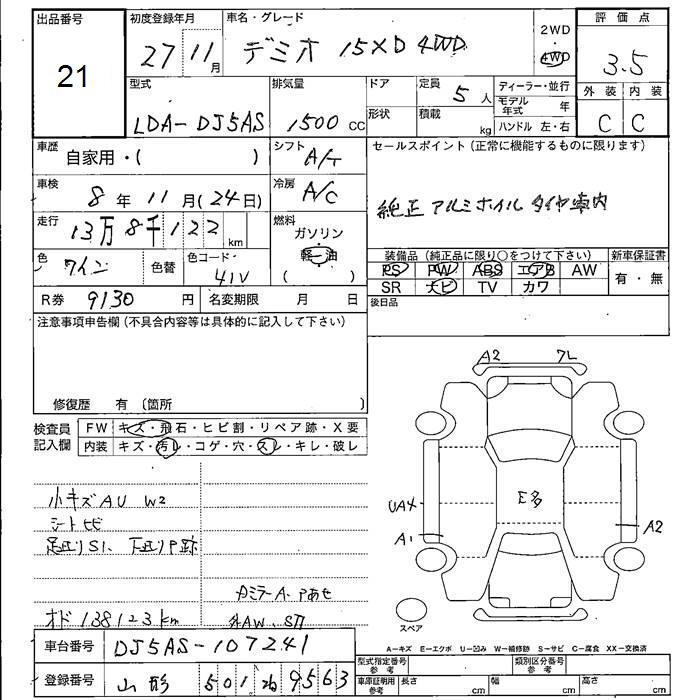 出品番号
21
初度登録年月
27 11月
車名・グレード
デミオ 15XD 4WD
2WD
・
4WD
評価点
3.5
外装 内装
C C
型式
LDA-DJ5AS
排気量
1500 CC
ドア
形状
定員
5 人
積載
kg
ディーラー・並行
モデル年式 年
ハンドル 左・右
車歴
自家用・( )
シフト
A/T
車検
8年 11月(24日)
冷房
A/C
走行
13万8千122 km
燃料
ガソリン
軽油
( )
色
ワイン
色替
色コード・
41V
R券 9130 円
名変期限 月 日
セールスポイント(正常に機能するものに限ります)
純正アルミホイル タイヤ車内
装備品(純正品に限り○をつけて下さい)
PS PW ABS エアB AW
SR ナビ TV カワ
新車保証書
有・無
後日品
注意事項申告欄(不具合内容等は具体的に記入して下さい)
修復歴 有 (箇所 )
検査員記入欄
FW キズ・飛石・ヒビ割・リペア跡・X要
内装 キズ・汚レ・コゲ・穴・スレ・キレ・破レ
小キズAU W2
シートヒビ
足廻りS1、下廻りP跡
カミラーA・Pあせ
オド 138123km
外AW、S万
A2 フL
UA4
A1
E多
A2
スペア
A-キズ E-エクボ U-凹み W-補修跡 S-サビ C-腐食 XX-交換済
車台番号 DJ5AS-107241
登録番号 山形 501 ね 9563
型式指定番号 参考
類別区分番号 参考
車庫証明用参考 長さ cm 幅 cm 高さ cm